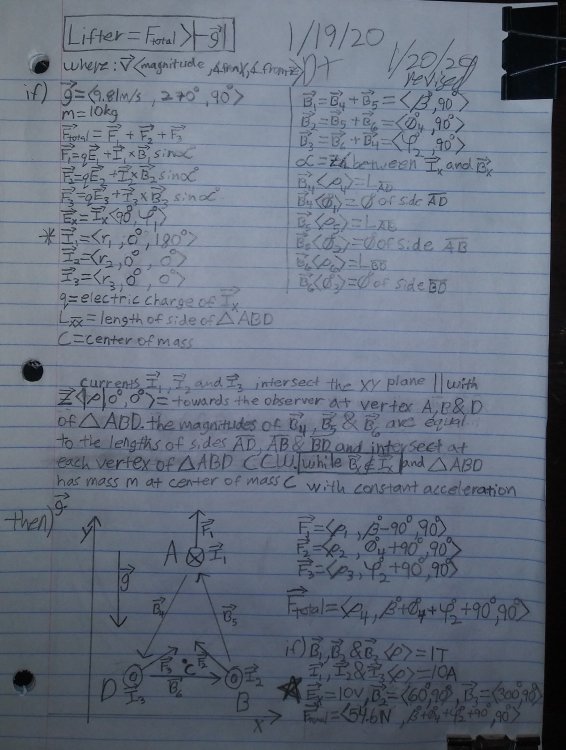 Lifter = F_total > |-g⃗|
1/19/20
where: ∇⃗<magnitude, ∡ from x, ∡ from z>
DT
1/20/20
revised
if)
g⃗ = <9.81m/s, 270°, 90°>
m = 10kg
F⃗_total = F⃗ + F⃗_2 + F⃗_3
F⃗_1 = qE⃗_1 + I⃗_1 × B⃗_1 sin∝
F⃗_2 = qE⃗_2 + I⃗_2 × B⃗_2 sin∝
F⃗_3 = qE⃗_3 + I⃗_3 × B⃗_3 sin∝
E⃗x = I⃗x <90°, φ_1°>
* I⃗_1 = <r_1, 0°, 180°>
I⃗_2 = <r_2, 0°, 0°>
I⃗_3 = <r_3, 0°, 0°>
q = electric charge of I⃗x
L_XX = length of side of △ABD
C = center of mass
B⃗_1 = B⃗_4 + B⃗_5 = <β°, 90°>
B⃗_2 = B⃗_5 + B⃗_6 = <∅_4°, 90°>
B⃗_3 = B⃗_6 + B⃗_4 = <φ_2°, 90°>
∝ = between I⃗x and B⃗x
B⃗_4<ρ_4> = L_AD
B⃗_4<∅_1°> = ∅ of side AD
B⃗_5<ρ_5> = L_AB
B⃗_5<∅_2°> = ∅ of side AB
B⃗_6<ρ_6> = L_BD
B⃗_6<∅_3°> = ∅ of side BD
currents I⃗_1, I⃗_2 and I⃗_3 intersect the XY plane || with
Z⃗<|ρ| 0°, 0°> = towards the observer at vertex A, B & D
of △ABD. the magnitudes of B⃗_4, B⃗_5 & B⃗_6 are equal
to the lengths of sides AD, AB & BD and intersect at
each vertex of △ABD CCW, while and △ABD
has mass m at center of mass C with constant acceleration
g⃗
then)
F⃗_1 = <ρ_1, β-90°, 90°>
F⃗_2 = <ρ_2, ∅_4+90°, 90°>
F⃗_3 = <ρ_3, φ_2+90°, 90°>
F⃗_total = <ρ_4, β°+∅_4+φ_2°+90°, 90°>
if) B⃗_1, B⃗_2 & B⃗_3 <ρ> = 1T
I⃗_1, I⃗_2 & I⃗_3 <ρ> = 10A
E⃗ = 10V, B⃗_2 = <60°, 90°>, B⃗_3 = <300°, 90°>
F⃗_total = <54.6N, β+∅_4+φ_2+90°, 90°>
y
F⃗_1
A
I⃗_1
g⃗
B⃗_4
B⃗_5
F⃗_3
C
F⃗_2
D
I⃗_3
B⃗_6
I⃗_2
B
x